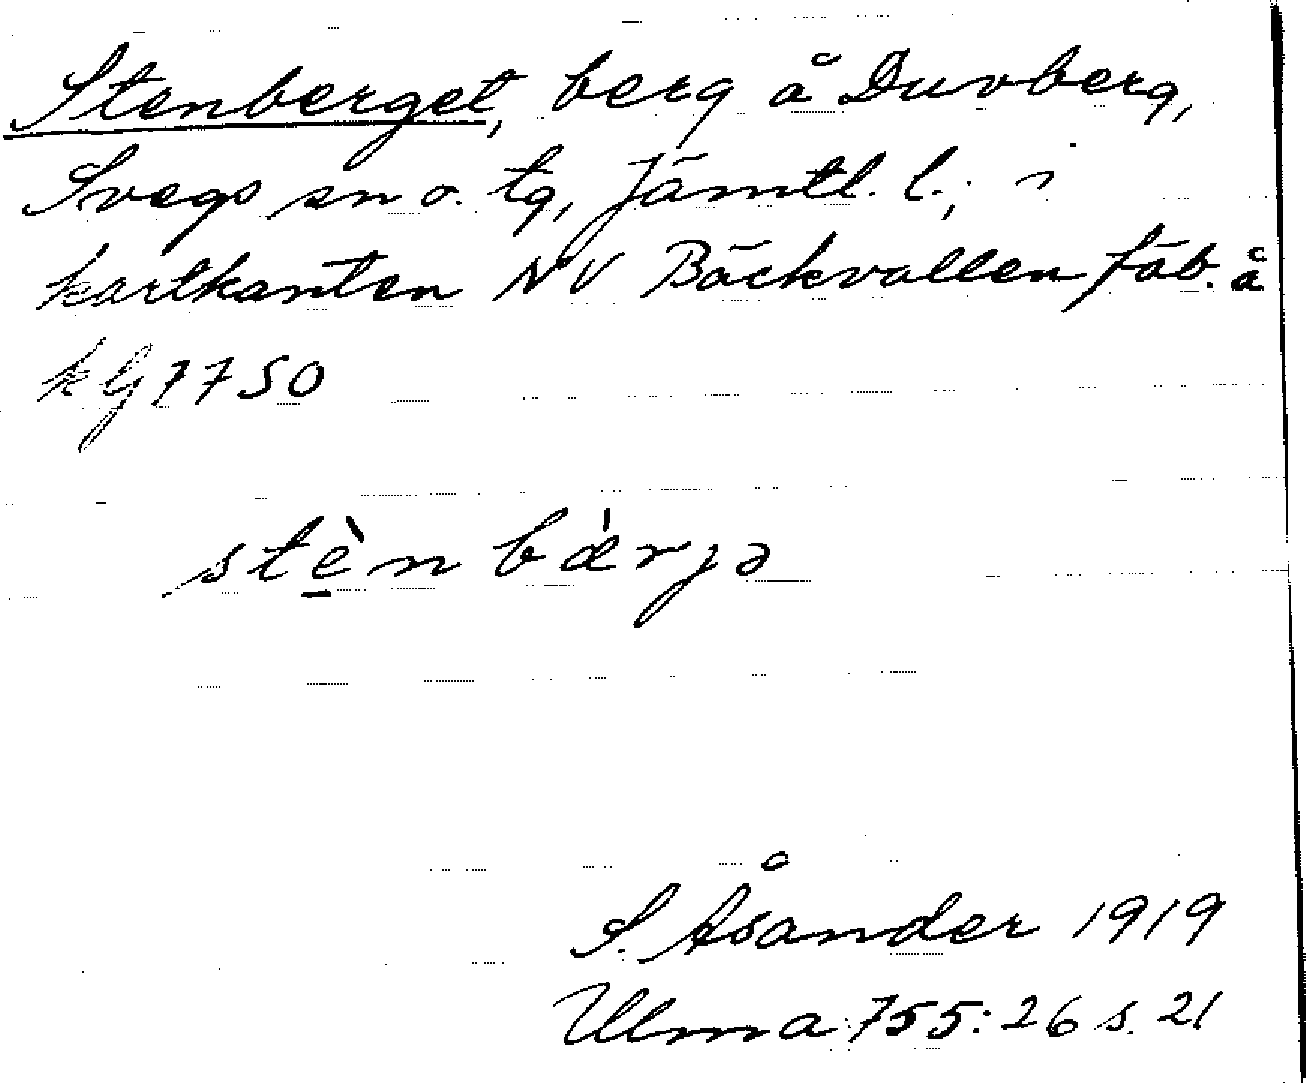 Stenberget, berg å Duvberg,
Svegs sn o. tg, Jämtl. l., i
kartkanten NV Bäckvallen fäb. å
kg 7750
stè̱n bæ̀rjə
S. Åsander 1919
Ulma 755:26 s. 21